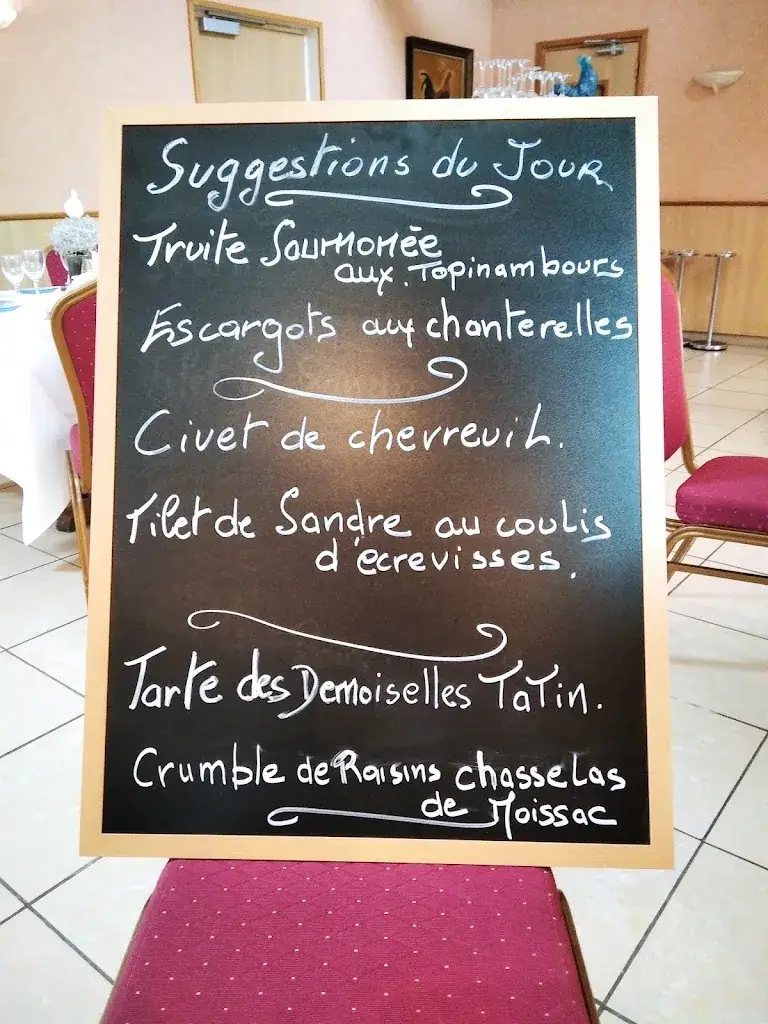 Suggestions du Jour
Truite Saumonée
aux Topinambours
Escargots aux chanterelles
Civet de chevreuil.
Filet de Sandre au coulis
d'écrevisses.
Tarte des Demoiselles TaTin.
Crumble de Raisins chasselas
de Moissac